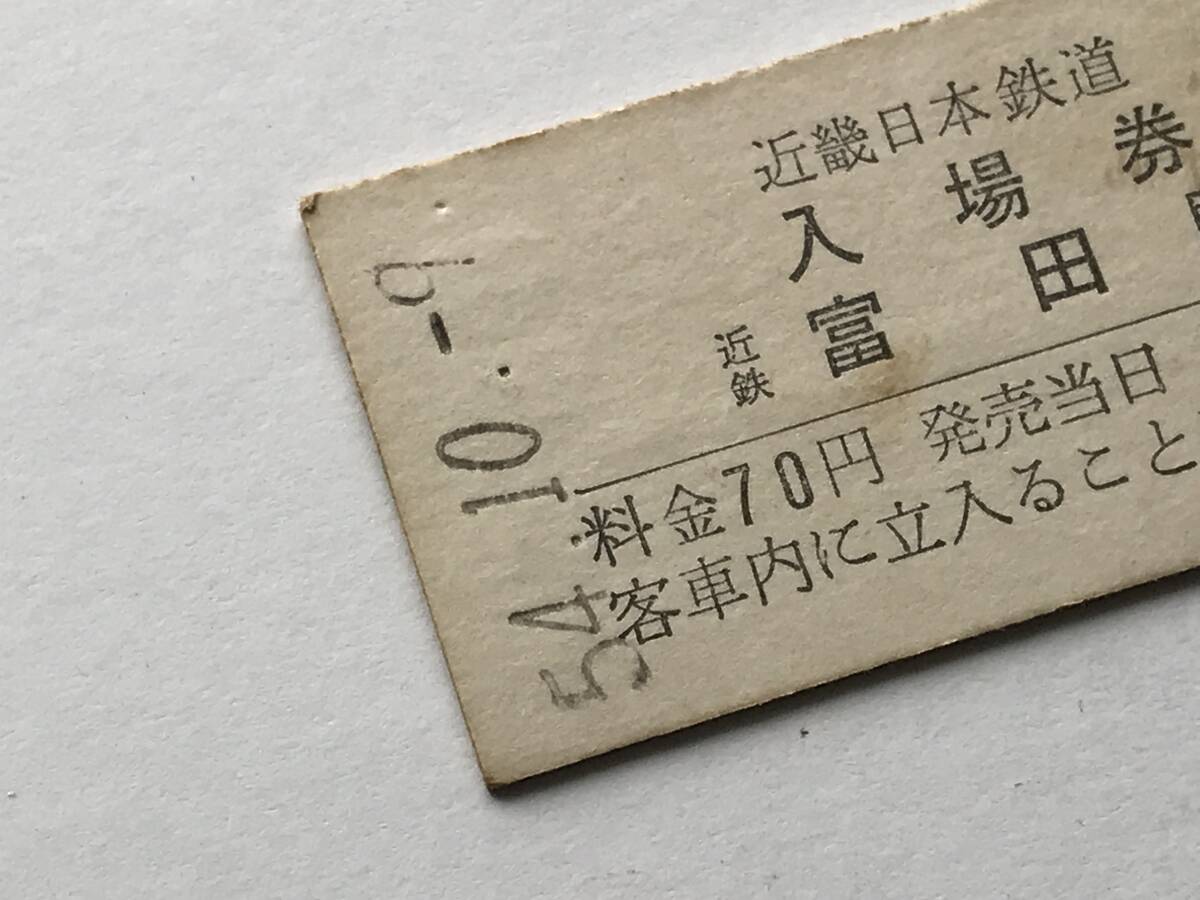 近畿日本鉄道
入場券
近鉄 富田
料金70円 発売当日
客車内に立入ること
54.10.-9